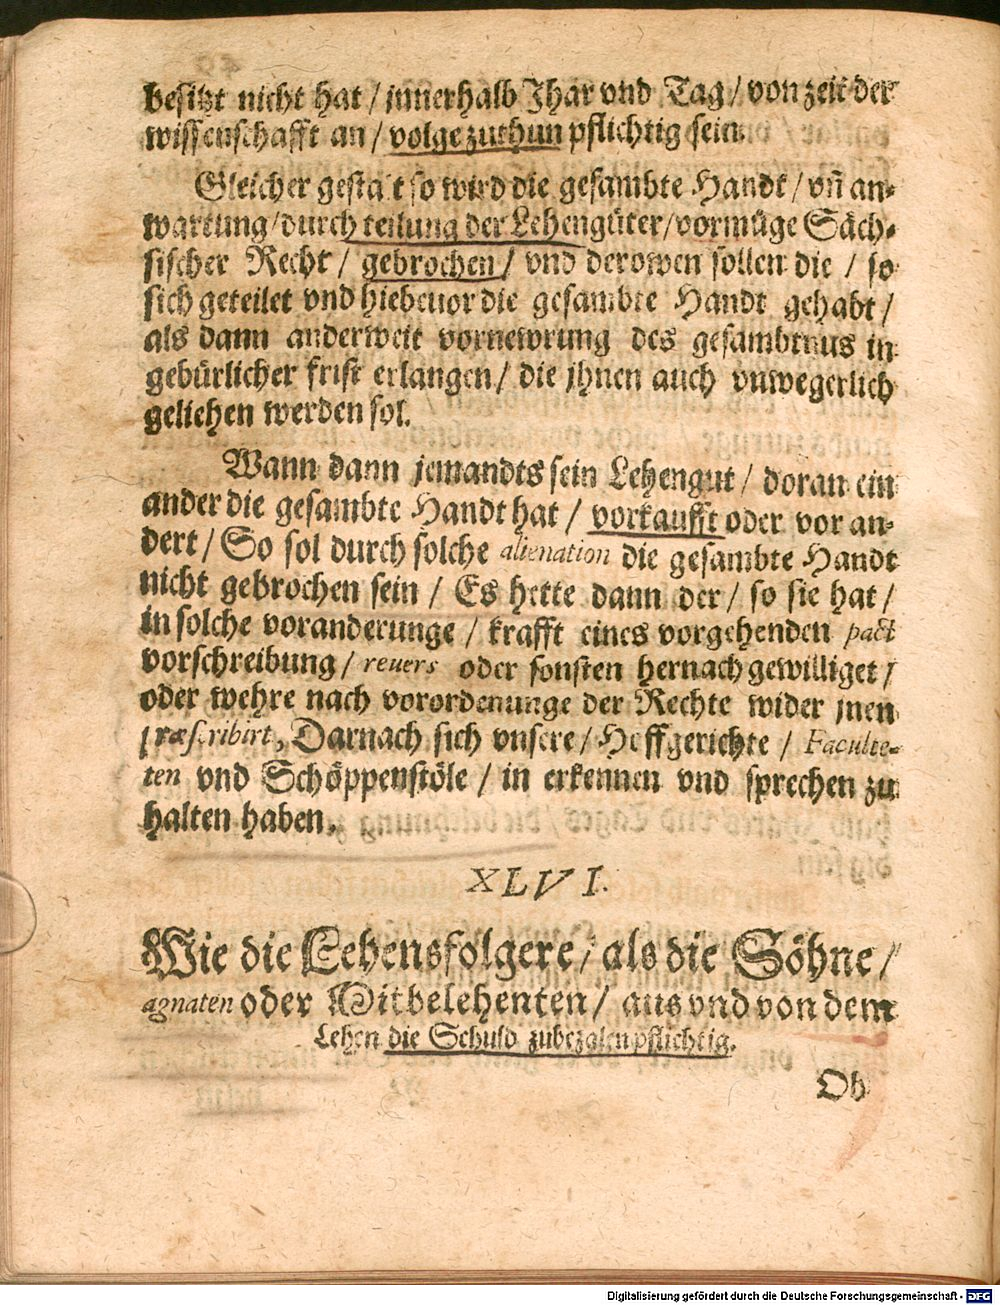 besitzt nicht hat / jnnerhalb Jhar vnd Tag / von zeit der
wissenschafft an / volge zuthun pflichtig sein.
Gleicher gestalt so wird die gesambte Handt / vñ an-
wartung / durch teilung der Lehengüter / vormüge Säch-
sischer Recht / gebrochen / vnd derowen sollen die / so
sich geteilet vnd hiebeuor die gesambte Handt gehabt /
als dann anderweit vornewrung des gesambtnus in
gebürlicher frist erlangen / die jhnen auch vnwegerlich
geliehen werden sol.
Wann dann jemandts sein Lehengut / doran ein
ander die gesambte Handt hat / vorkaufft oder vor an-
dert / So sol durch solche alienation die gesambte Handt
nicht gebrochen sein / Es hette dann der / so sie hat /
in solche voranderunge / krafft eines vorgehenden pact
vorschreibung / reuers oder sonsten hernach gewilliget /
oder wehre nach vorordenunge der Rechte wider jnen
præscribirt, Darnach sich vnsere / Hoffgerichte / Faculte-
ten vnd Schöppenstöle / in erkennen vnd sprechen zu
halten haben.
XLVI.
Wie die Lehensfolgere / als die Söhne /
agnaten oder Mitbelehenten / aus vnd von dem
Lehen die Schuld zubezalen pflichtig.
Ob
Digitalisierung gefördert durch die Deutsche Forschungsgemeinschaft - DFG